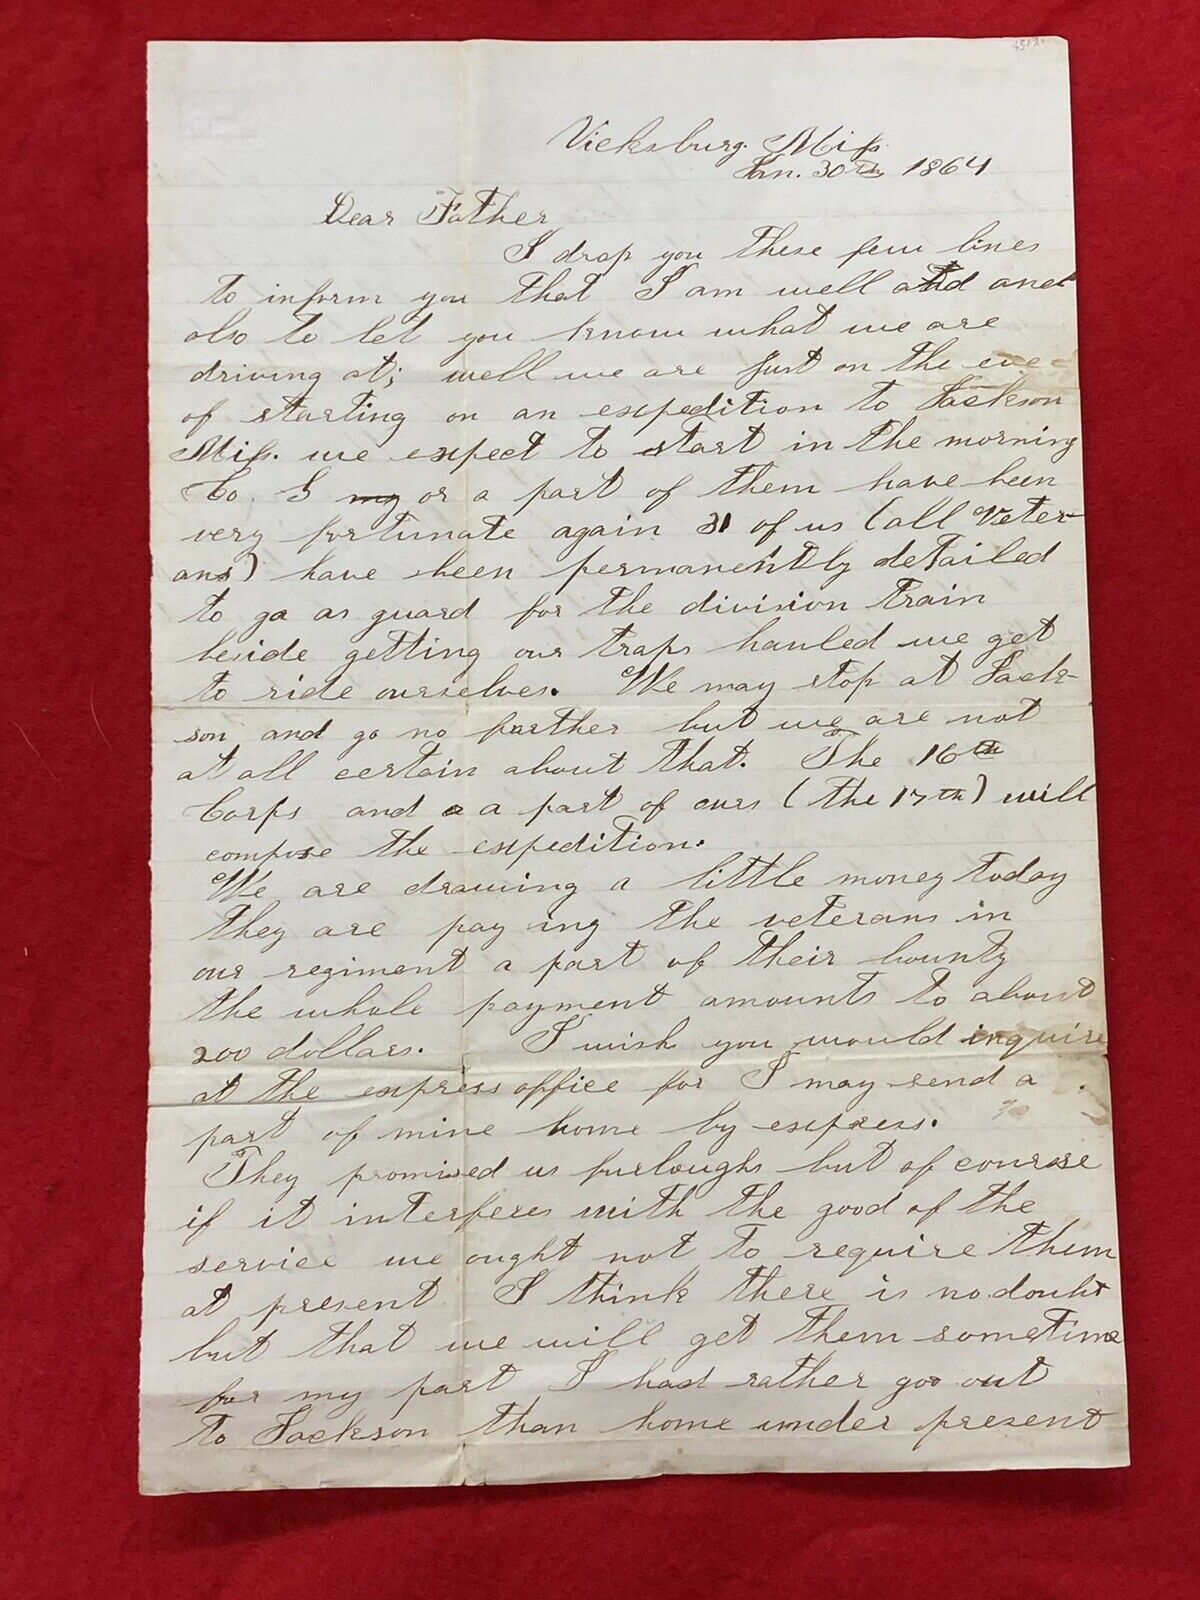 Vicksburg. Miss.
Jan. 30th 1864
Dear Father
I drop you these few lines
to inform you that I am well and and
also to let you know what we are
driving at; well we are just on the eve
of starting on an expedition to Jackson
Miss. we expect to start in the morning
Co. G my or a part of them have been
very fortunate again 31 of us (all Veter-
ans) have been permanently detailed
to go as guard for the division train
beside getting our traps hauled we get
to ride ourselves. We may stop at Jack-
son and go no farther but we are not
at all certain about that. The 16th
Corps and a a part of ours (the 17th) will
compose the expedition.
We are drawing a little money today
they are paying the veterans in
our regiment a part of their bounty
the whole payment amounts to about
200 dollars. I wish you would inquire
at the express office for I may send a
part of mine home by express.
They promised us furloughs but of course
if it interferes with the good of the
service we ought not to require them
at present I think there is no doubt
but that we will get them sometime
for my part I had rather go out
to Jackson than home under present